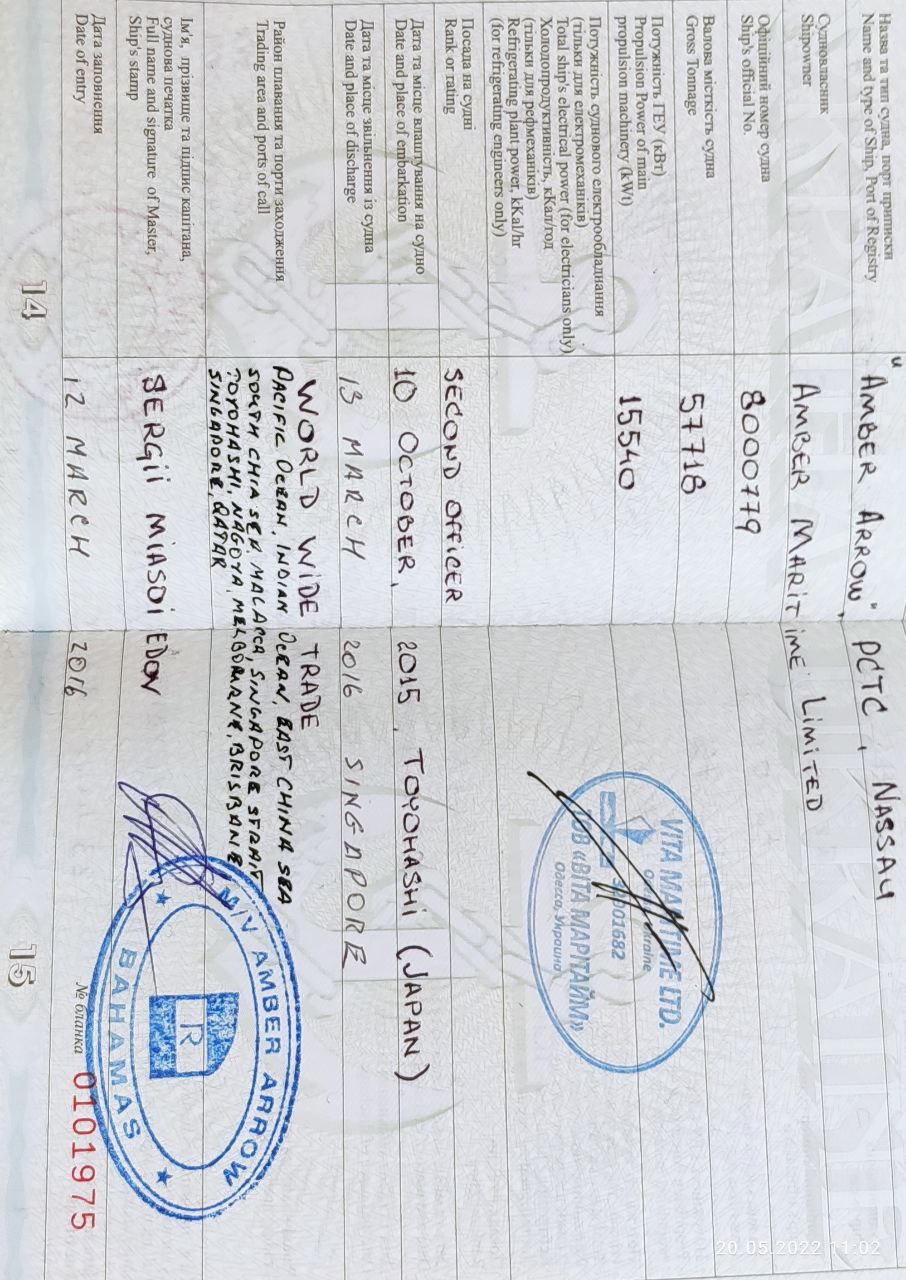 Назва та тип судна, порт приписки
Name and type of Ship, Port of Registry
"AMBER ARROW", PCTC, NASSAU
Судновласник
Shipowner
AMBER MARITIME LIMITED
Офіційний номер судна
Ship's official No.
8000779
Валова місткість судна
Gross Tonnage
57718
Потужність ГЕУ (кВт)
Propulsion Power of main
propulsion machinery (kWt)
15540
Потужність суднового електрообладнання
(тільки для електромеханіків)
Total ship's electrical power (for electricians only)
Холодопродуктивність, кКал/год
(тільки для рефмеханіків)
Refrigerating plant power, kKal/hr
(for refrigerating engineers only)
VITA MARITIME LTD.
Odessa, Ukraine
32001682
ТОВ «ВІТА МАРІТАЙМ»
Одесса, Украина
Посада на судні
Rank or rating
SECOND OFFICER
Дата та місце влаштування на судно
Date and place of embarkation
10 OCTOBER, 2015, TOYOHASHI (JAPAN)
Дата та місце звільнення із судна
Date and place of discharge
13 MARCH 2016 SINGAPORE
Район плавання та порти заходження
Trading area and ports of call
WORLD WIDE TRADE
PACIFIC OCEAN, INDIAN OCEAN, EAST CHINA SEA
SOUTH CHIA SEA, MALACCA, SINGAPORE STRAIT
TOYOHASHI, NAGOYA, MELBOURNE, BRISBANE
SINGAPORE, QATAR
Ім'я, прізвище та підпис капітана,
суднова печатка
Full name and signature of Master,
Ship's stamp
SERGII MIASOIEDOV
M/V AMBER ARROW
R
BAHAMAS
Дата заповнення
Date of entry
12 MARCH 2016
№ бланка 0101975
14
15
20.05.2022 11:02